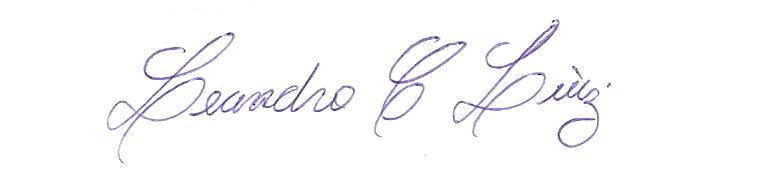 Leandro C Luiz